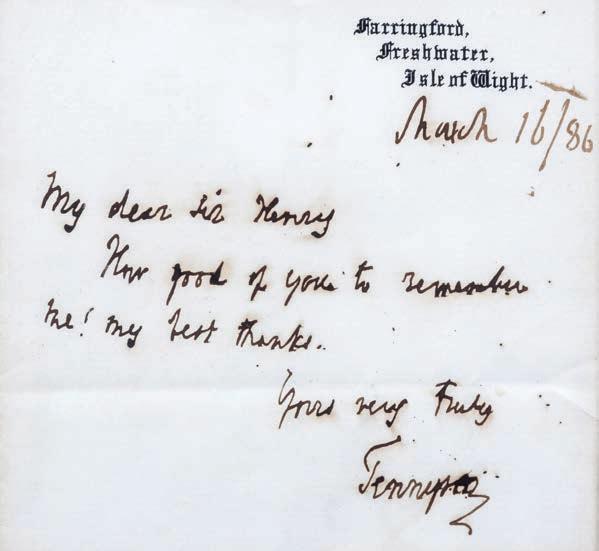 Farringford,
Freshwater,
Isle of Wight.
March 16/86
My dear Sir Henry
How good of you to remember
me! my best thanks.
Yours very truly
Tennyson